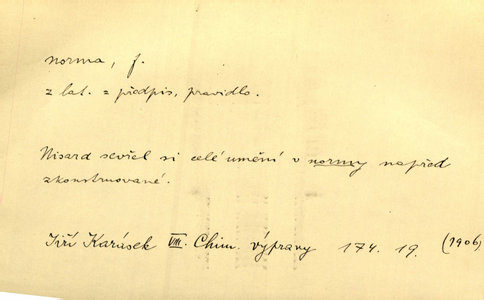 norma, f.
z lat. = předpis, pravidlo.
Nisard sevřel si celé umění v normy napřed
zkonstruované.
Jiří Karásek VIII. Chim. výpravy 174. 19. (1906)